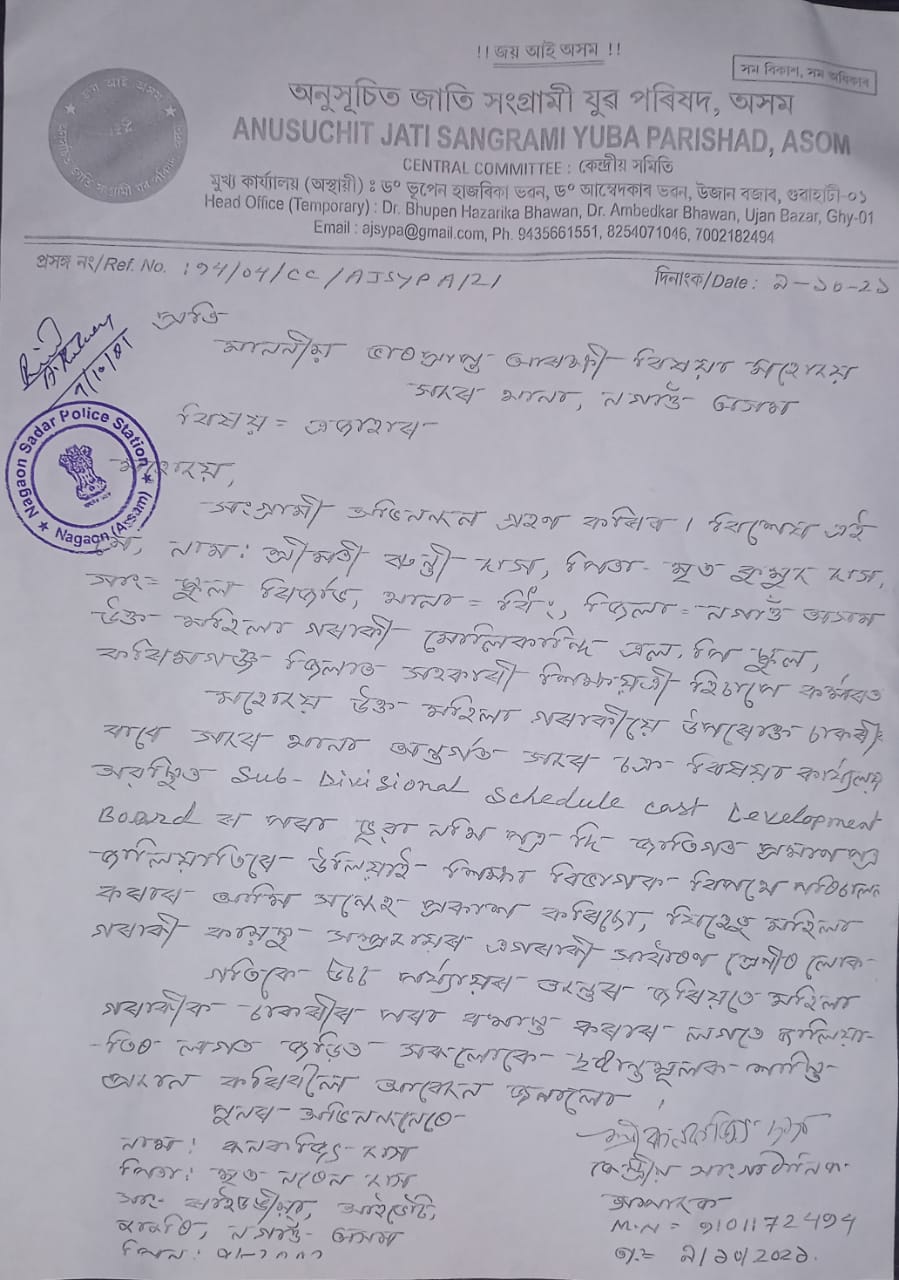 !! জয় আই অসম !!
সম বিকাশ, সম অধিকাৰ
অনুসূচিত জাতি সংগ্ৰামী যুৱ পৰিষদ, অসম
ANUSUCHIT JATI SANGRAMI YUBA PARISHAD, ASOM
CENTRAL COMMITTEE : কেন্দ্ৰীয় সমিতি
মুখ্য কাৰ্য্যালয় (অস্থায়ী) : ড° ভূপেন হাজৰিকা ভৱন, ড° আম্বেদকাৰ ভৱন, উজান বজাৰ, গুৱাহাটী-০১
Head Office (Temporary) : Dr. Bhupen Hazarika Bhawan, Dr. Ambedkar Bhawan, Ujan Bazar, Ghy-01
Email : ajsypa@gmail.com, Ph. 9435661551, 8254071046, 7002182494
প্ৰসঙ্গ নং/Ref. No. : 14/04/CC/AJSYPA/21
দিনাংক/Date : ৯-১০-২১
প্ৰতি
মাননীয় ভাৰপ্ৰাপ্ত আৰক্ষী বিষয়া মহোদয়
সদৰ থানা, নগাওঁ অসম
Nagaon Sadar Police Station
Nagaon (Assam)
বিষয় = এজাহাৰ
মহোদয়,
সংগ্ৰামী অভিনন্দন গ্ৰহণ কৰিব। বিশেষ এই
যে, নাম: শ্ৰীমতী দাস, পিতা- মৃত কুমুদ দাস,
সাং= স্কুল থানা = জিলা = নগাওঁ অসম
উক্ত মহিলা গৰাকী এল.পি স্কুল,
কৰিমগঞ্জ জিলাত সহকাৰী শিক্ষয়িত্ৰী হিচাপে কৰ্মৰত
মহোদয় উক্ত মহিলা গৰাকীয়ে উপৰোক্ত চাকৰীৰ
বাবে সদৰ থানা অন্তৰ্গত সদৰ চক্ৰ বিষয়াৰ কাৰ্য্যালয়
অৱস্থিত Sub-Divisional Schedule Cast Development
Board ৰ পৰা ভূৱা নথি পত্ৰ দি জাতিগত প্ৰমাণ পত্ৰ
জালিয়াতিৰে উলিয়াই শিক্ষা বিভাগক বিপথে পৰিচালনা
কৰাৰ আমি সন্দেহ প্ৰকাশ কৰিছো, যিহেতু মহিলা
গৰাকী কায়স্থ সম্প্ৰদায়ৰ এগৰাকী সাধাৰণ শ্ৰেণীৰ লোক
গতিকে উচ্চ পৰ্য্যায়ৰ তদন্তৰ জৰিয়তে মহিলা
গৰাকীক চাকৰীৰ পৰা বৰখাস্ত কৰাৰ লগতে জালিয়া-
-তিৰ লগত জড়িত সকলোকে দৃষ্টান্তমূলক শাস্তি
প্ৰদান কৰিবলৈ আবেদন জনালো।
পুনৰ অভিনন্দনেৰে
নাম: দাস
পিতা: মৃত দাস
নগাওঁ- অসম
কেন্দ্ৰীয় সাংগঠনিক
সম্পাদক
M.N = 9101172494
তাং= ৯/১০/2021.